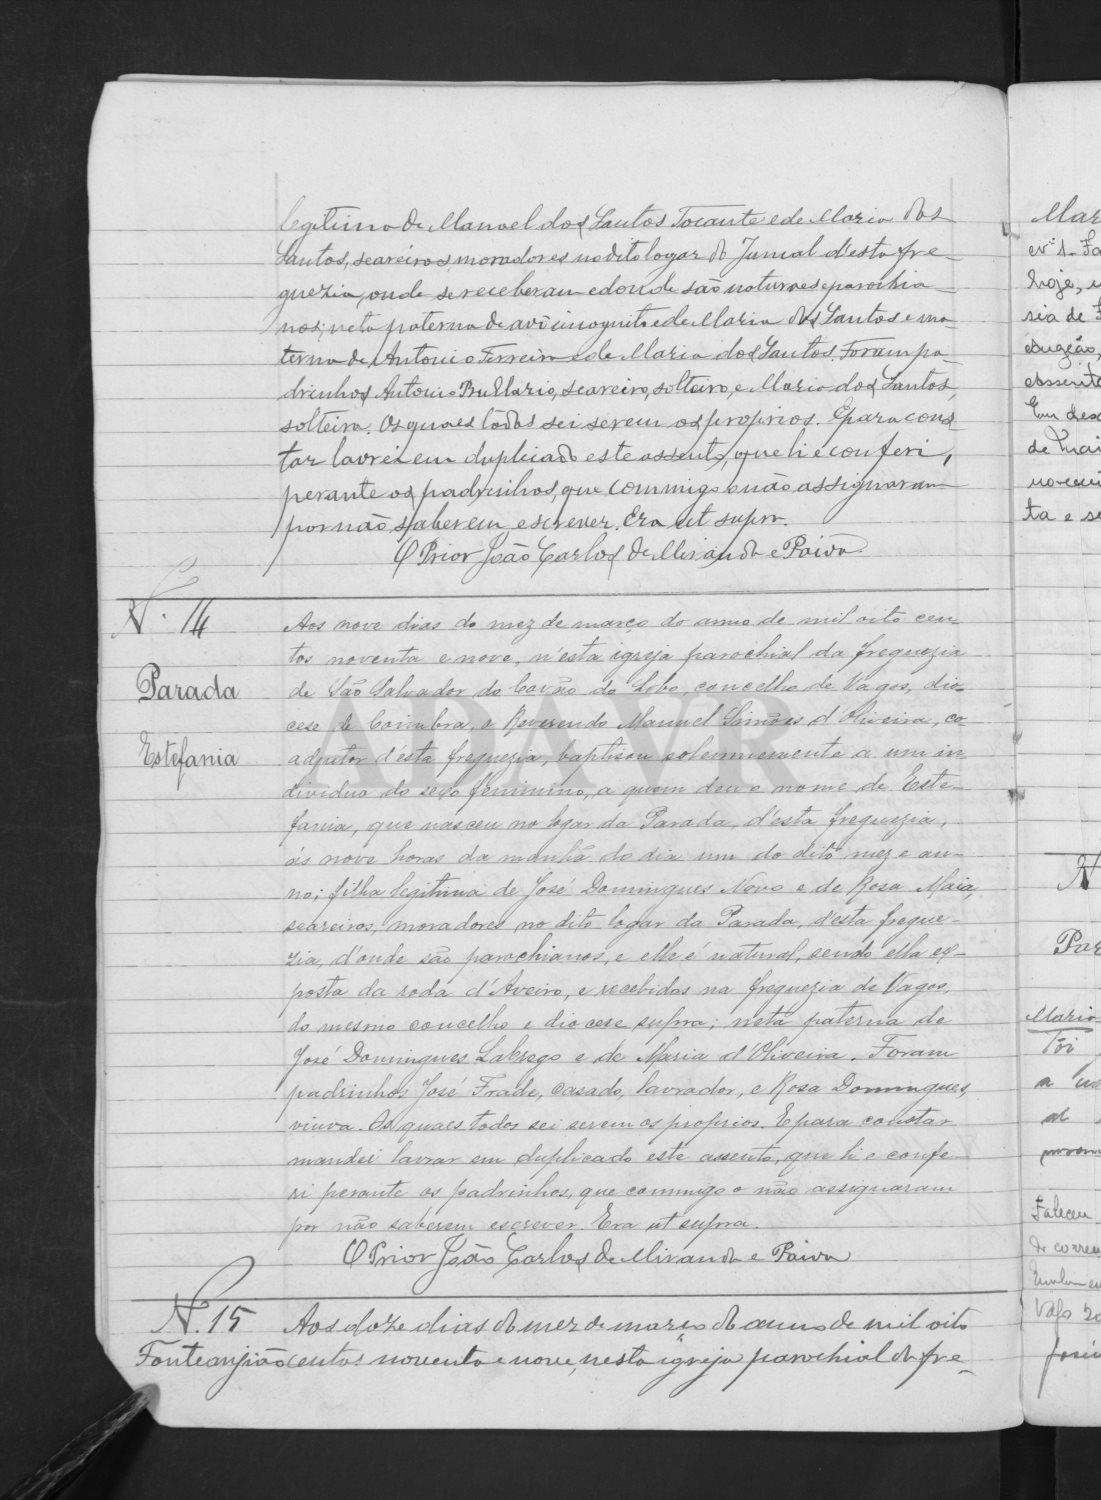 legitima de Manoel dos Santos Tocante e de Maria dos
Santos, seareiros, moradores no dito logar do Juncal d'esta fre-
guezia, onde se receberam e d'onde são naturaes e parochia-
nos; neta paterna de avô incognito e de Maria dos Santos e ma-
terna de Antonio Ferreira e de Maria dos Santos. Foram pa-
drinhos Antonio, seareiro, solteiro, e Maria dos Santos,
solteira. Os quaes todos sei serem os proprios. E para cons
tar lavrei em duplicado este assento, que li e conferi,
perante os padrinhos, que commigo o não assignaram
por não saberem escrever. Era ut supra.
O Prior João Carlos de Miranda e Paiva
N. 14
Parada
Estefania
Aos nove dias do mez de março do anno de mil oito cen-
tos noventa e nove, n'esta igreja parochial da freguezia
de São Salvador do Covão do Lobo, concelho de Vagos, dio-
cese de Coimbra, o Reverendo Manuel Simões d'Oliveira, co-
adjutor d'ésta freguezia, baptisou solemnemente a um in
dividuo do sexo feminino, a quem deu o nome de Este-
fania, que nasceu no logar da Parada, d'esta freguezia,
ás nove horas da manhã do dia um do dito mez e an-
no; filha legitima de José Domingues Novo e de Rosa Maia,
seareiros, moradores no dito logar da Parada, d'esta fregue-
zia, d'onde são parochianos, e elle é natural, sendo ella ex-
posta da roda d'Aveiro, e recebidos na freguezia de Vagos,
do mesmo concelho e diocese supra; neta paterna de
José Domingues Labrego e de Maria d'Oliveira. Foram
padrinhos José Frade, casado, lavrador, e Rosa Domingues,
viuva. Os quaes todos sei serem os proprios. E para constar
mandei lavrar em duplicado este assento, que li e confe-
ri perante os padrinhos, que commigo o não assignaram
por não saberem escrever. Era ut supra.
O Prior João Carlos de Miranda e Paiva
N. 15
Fonteanjião
Aos doze dias do mez de março do anno de mil oito
centos noventa e nove, nesta igreja parochial da fre-
ADAVR
Mar
hoje,
ria de
de
ta e se
N
Par
Maria
a
Faleceu